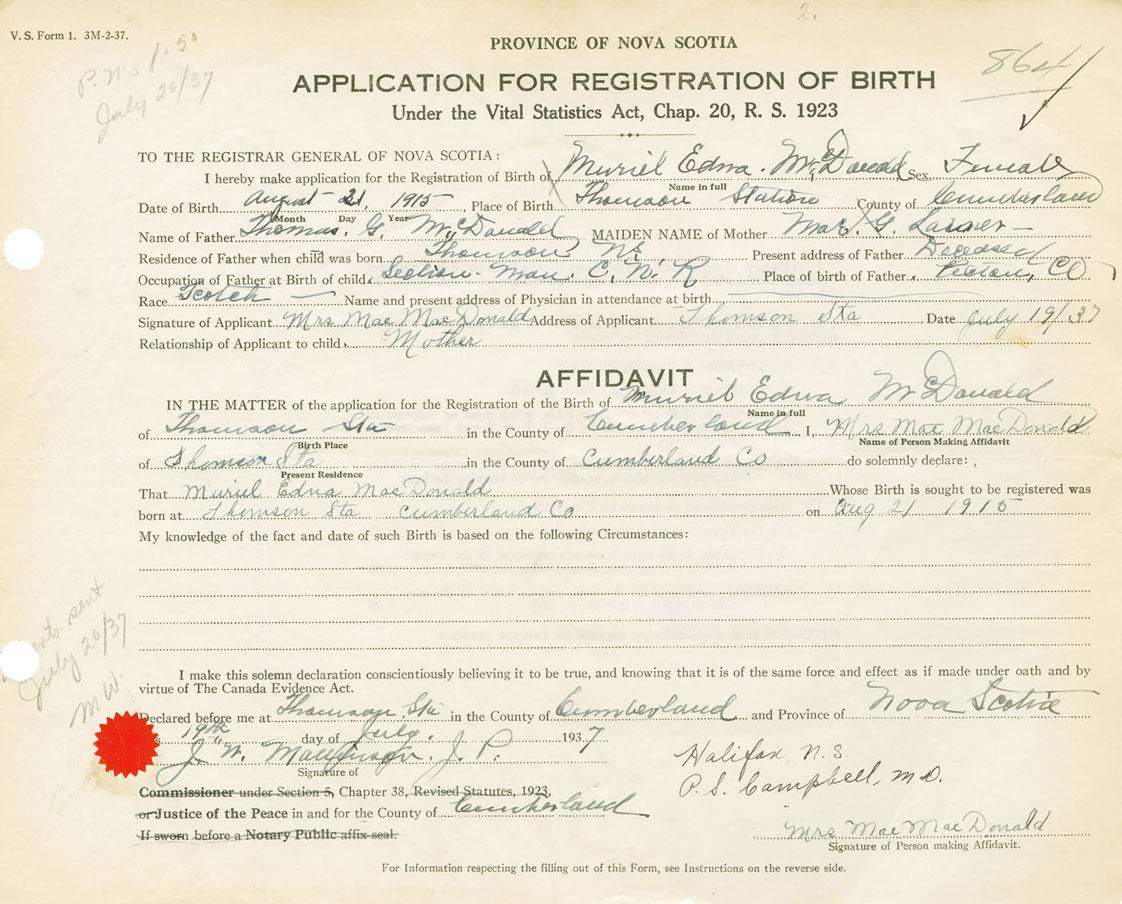 2.
V. S. Form 1. 3M-2-37.
P.N's 1.50
July 20/37
PROVINCE OF NOVA SCOTIA
864
APPLICATION FOR REGISTRATION OF BIRTH
Under the Vital Statistics Act, Chap. 20, R. S. 1923
TO THE REGISTRAR GENERAL OF NOVA SCOTIA:
I hereby make application for the Registration of Birth of Muriel Edna McDonald Sex Female
Name in full
Date of Birth August 21, 1915, Place of Birth Thomson Station County of Cumberland
Month Day Year
Name of Father Thomas. G. McDonald MAIDEN NAME of Mother G.
Residence of Father when child was born Thomson NS Present address of Father Deceased
Occupation of Father at Birth of child Section-Man. C. N. R Place of birth of Father Pictou, CO
Race Scotch Name and present address of Physician in attendance at birth
Signature of Applicant Mrs Mae MacDonald Address of Applicant Thomson Sta Date July 19/37
Relationship of Applicant to child Mother
AFFIDAVIT
IN THE MATTER of the application for the Registration of the Birth of Muriel Edna McDonald
Name in full
of Thomson Sta in the County of Cumberland I, Mrs Mae MacDonald
Birth Place Name of Person Making Affidavit
of Thomson Sta in the County of Cumberland Co do solemnly declare:
Present Residence
That Muriel Edna MacDonald Whose Birth is sought to be registered was
born at Thomson Sta Cumberland Co on Aug 21 1915
My knowledge of the fact and date of such Birth is based on the following Circumstances:
sent
July 20/37
M W.
I make this solemn declaration conscientiously believing it to be true, and knowing that it is of the same force and effect as if made under oath and by
virtue of The Canada Evidence Act.
Declared before me at Thomson Sta in the County of Cumberland and Province of Nova Scotia
19th day of July. 1937
J. W. J. P.
Signature of
Halifax, N. S
P. S. Campbell, M.D.
Commissioner under Section 5, Chapter 38, Revised Statutes, 1923,
or Justice of the Peace in and for the County of Cumberland
If sworn before a Notary Public affix seal.
Mrs Mae MacDonald
Signature of Person making Affidavit.
For Information respecting the filling out of this Form, see Instructions on the reverse side.